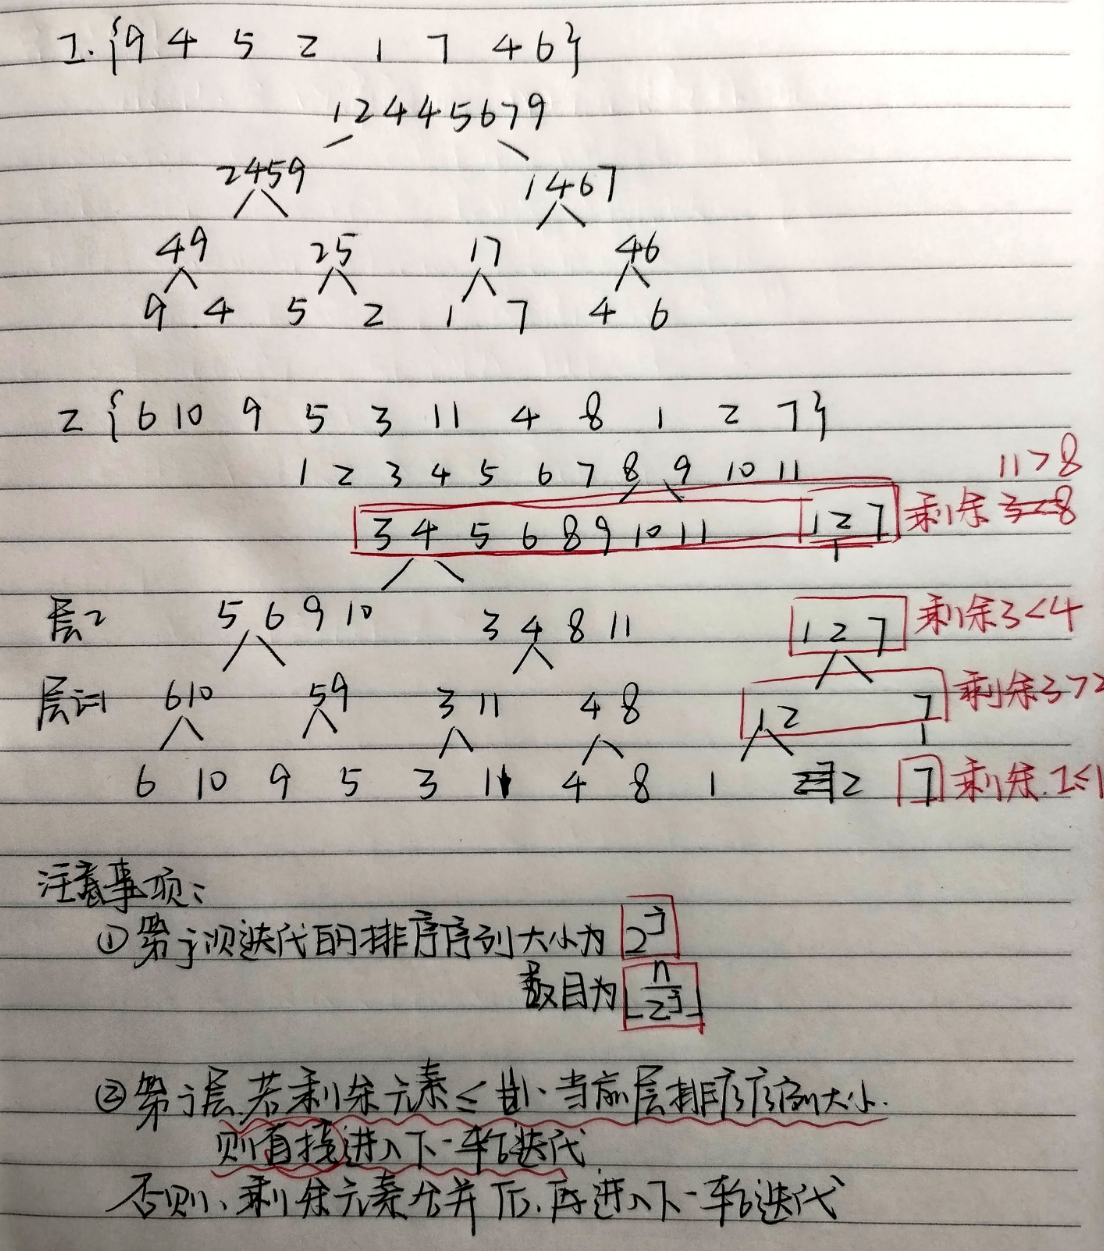 1. {9 4 5 2 1 7 4 6}
1 2 4 4 5 6 7 9
2459 1467
49 25 17 46
9 4 5 2 1 7 4 6
2 {6 10 9 5 3 11 4 8 1 2 7}
11>8
1 2 3 4 5 6 7 8 9 10 11
3 4 5 6 8 9 10 11 1 2 7 剩余3<8
层2 5 6 9 10 3 4 8 11 1 2 7 剩余3<4
层j=1 6 10 5 9 3 11 4 8 1 2 7 剩余3>2
6 10 9 5 3 11 4 8 1 2 7 剩余1≤1
注意事项:
①第j次迭代的排序序列大小为 2^j
数目为 ⌊n/2^j⌋
②第j层,若剩余元素≤ 当前层排序序列大小.
则直接进入下一轮迭代
否则,剩余元素合并后,再进入下一轮迭代